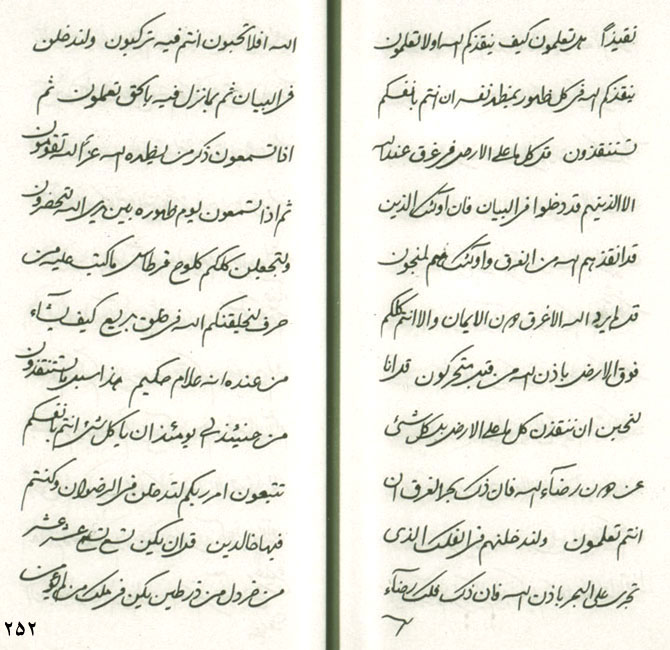 نقیذاً هل تعلمون کیف ینقذکم الله اولا تعلمون
ینقذکم الله فی کل ظهور بمظهر نفسه ان انتم بانفسکم
تستنقذون قد کل ما علی الارض فی غرق عند الله
الا الذینهم قد دخلوا فی البیان فان اولئک الذین
قد انقذهم الله من الغرق و اولئک هم لمنجون
قد الله الا غرق دون الایمان و الا انتم کلکم
فوق الارض باذن الله من قبل متحرکون قد انا
لنحبن ان ننقذن کل ما علی الارض بدکل شیئ
عن دون رضاء الله فان ذلک بحر الغرق ان
انتم تعلمون ولندخلنهم فی الفلک الذی
تجری علی البحر باذن الله فان ذلک فلک رضاء
الله افلا تحبون انتم فیه ترکبون ولندخلن
فی البیان ثم بما نزل فیه بالحق تعملون ثم
اذا تسمعون ذکر من یظهره الله عن الله تقومون
ثم اذا تسمعون یوم ظهوره بین یدی الله لتحضرون
ولتجعلن کلکم کلوح قرطاس ما کتب علیه من
حرف لیخلقنکم الله فی خلق بدیع کیف یشاء
من عنده انه علام حکیم هذا سبیل ما تستنقذون
من حینئذ الی یومئذ ان یا کل شیئ انتم بانفسکم
تتبعون امر ربکم لتدخلن فی الرضوان وکنتم
فیها خالدین قد ان یکن تسع تسع عشر عشر
من خردل من ذر طین یکن فی ملک من
۲۵۲